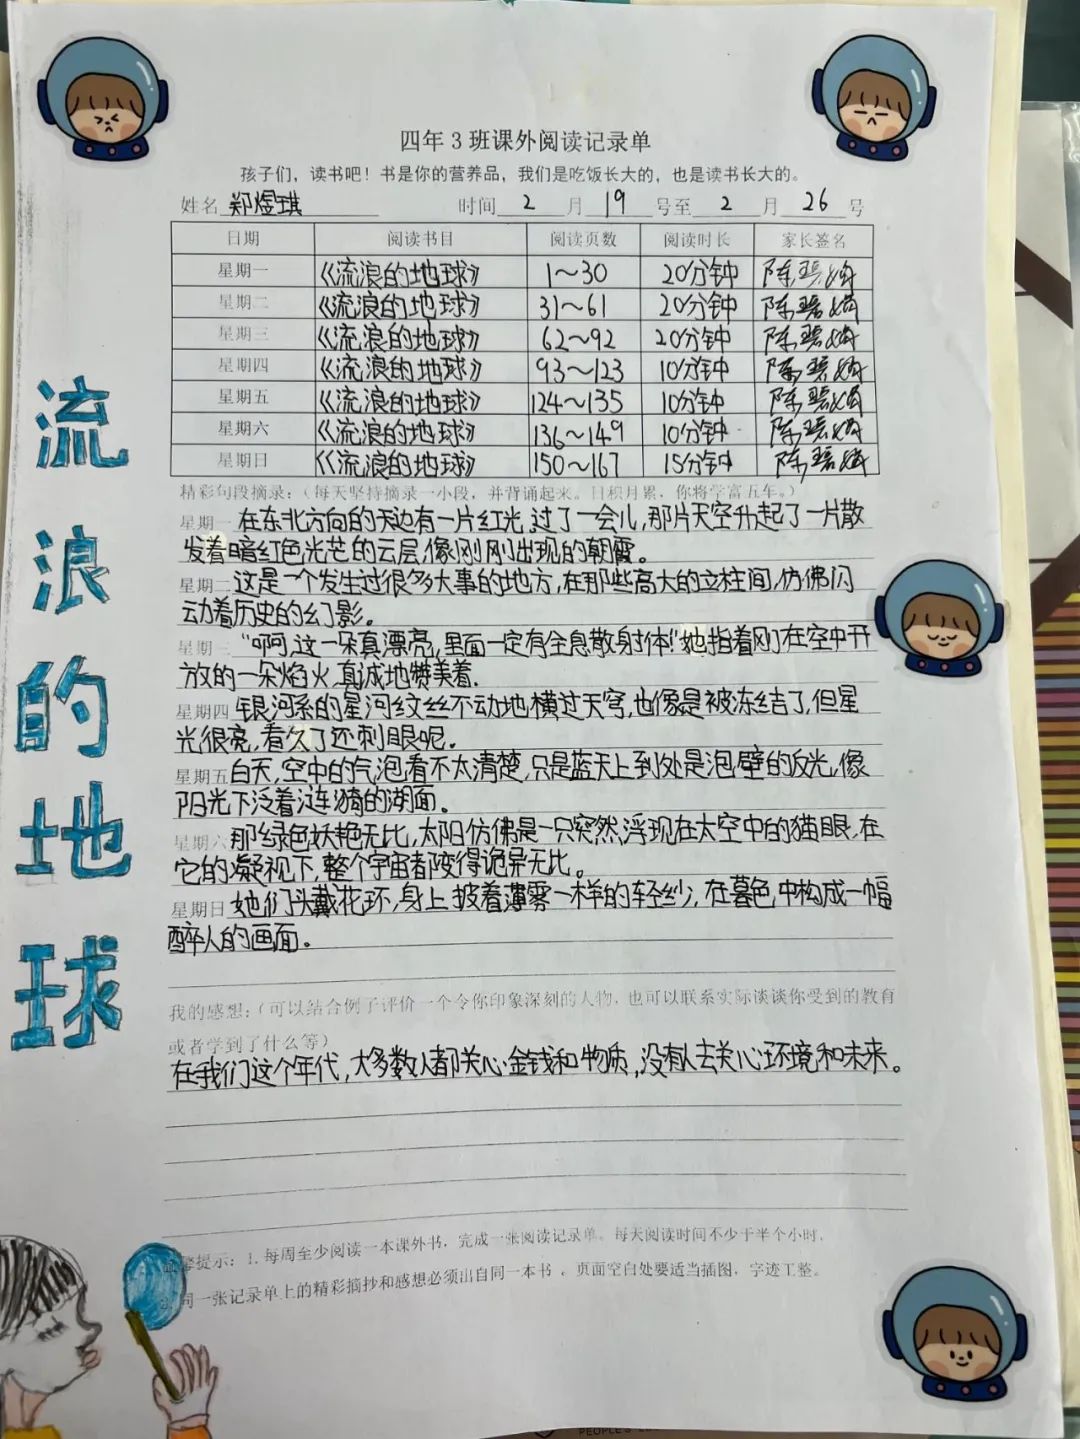 四年3班课外阅读记录单
孩子们，读书吧！书是你的营养品，我们是吃饭长大的，也是读书长大的。
姓名 郑煜琪 时间 2 月 19 号至 2 月 26 号
日期 阅读书目 阅读页数 阅读时长 家长签名
星期一 《流浪的地球》 1～30 20分钟 陈碧
星期二 《流浪的地球》 31～61 20分钟 陈碧
星期三 《流浪的地球》 62～92 20分钟 陈碧
星期四 《流浪的地球》 93～123 10分钟 陈碧
星期五 《流浪的地球》 124～135 10分钟 陈碧
星期六 《流浪的地球》 136～149 10分钟 陈碧
星期日 《流浪的地球》 150～167 15分钟 陈碧
精彩句段摘录：（每天坚持摘录一小段，并背诵起来。日积月累，你将学富五车。）
星期一 在东北方向的天边有一片红光，过了一会儿，那片天空升起了一片散
发着暗红色光芒的云层，像刚刚出现的朝霞。
星期二 这是一个发生过很多大事的地方，在那些高大的立柱间，仿佛闪
动着历史的幻影。
星期三 "啊，这一朵真漂亮，里面一定有全息散射体！"她指着刚在空中开
放的一朵焰火，真诚地赞美着。
星期四 银河系的星河纹丝不动地横过天穹，也像是被冻结了，但星
光很亮，看久了还刺眼呢。
星期五 白天，空中的气泡看不太清楚，只是蓝天上到处是泡壁的反光，像
阳光下泛着涟漪的湖面。
星期六 那绿色妖艳无比，太阳仿佛是一只突然浮现在太空中的猫眼，在
它的凝视下，整个宇宙都变得诡异无比。
星期日 她们头戴花环，身上披着薄雾一样的轻纱，在暮色中构成一幅
醉人的画面。
我的感想：（可以结合例子评价一个令你印象深刻的人物，也可以联系实际谈谈你受到的教育
或者学到了什么等）
在我们这个年代，大多数人都关心金钱和物质，没有人去关心环境和未来。
馨提示：1.每周至少阅读一本课外书，完成一张阅读记录单。每天阅读时间不少于半个小时。
2.同一张记录单上的精彩摘抄和感想必须出自同一本书。页面空白处要适当插图，字迹工整。
流浪的地球